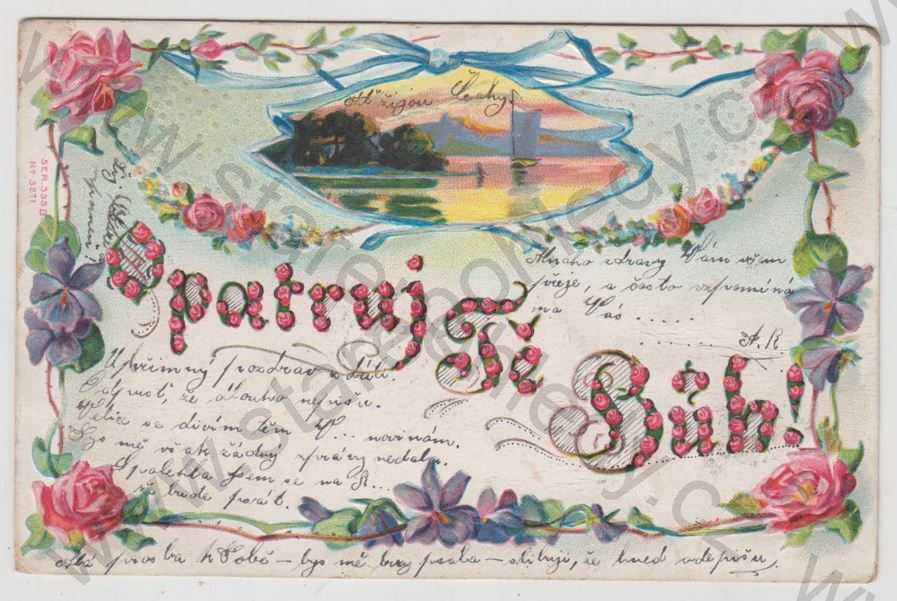 Ať žijou Čechy!
SER. 353 D
Nº 3271
Opatruj Tě Bůh!
Mnoho zdravý Vám všem
přeje, a často vzpomíná
na Vás ......
A. R.
Upřímný pozdrav
že dlouho nepíšu.
Velice se divím těm V... novinám.
mě však žádný zprávy
Spolehla jsem se na R...
že bude psát.
prosba k Tobě – bys mě brzy psala – slibuji, že hned odepíšu.
www.starepohledy.cz